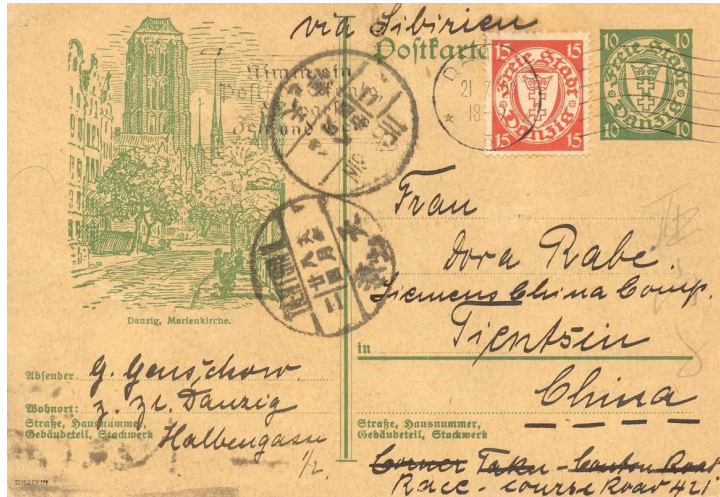 via Sibirien
Postkarte
15 15
Freie Stadt
Danzig
15 15
10 10
Freie Stadt
Danzig
10 10
21
18
Nimm ein
TIENTSIN
Frau
Dora Rabe.
Siemens China Comp.
in Tientsin
China
Danzig, Marienkirche.
Absender G. Genschow
Wohnort: z. Zt. Danzig
Straße, Hausnummer,
Gebäudeteil, Stockwerk
Halbengasse
1/2
Straße, Hausnummer,
Gebäudeteil, Stockwerk
Corner Taku - Canton Road
Race - course Road 421